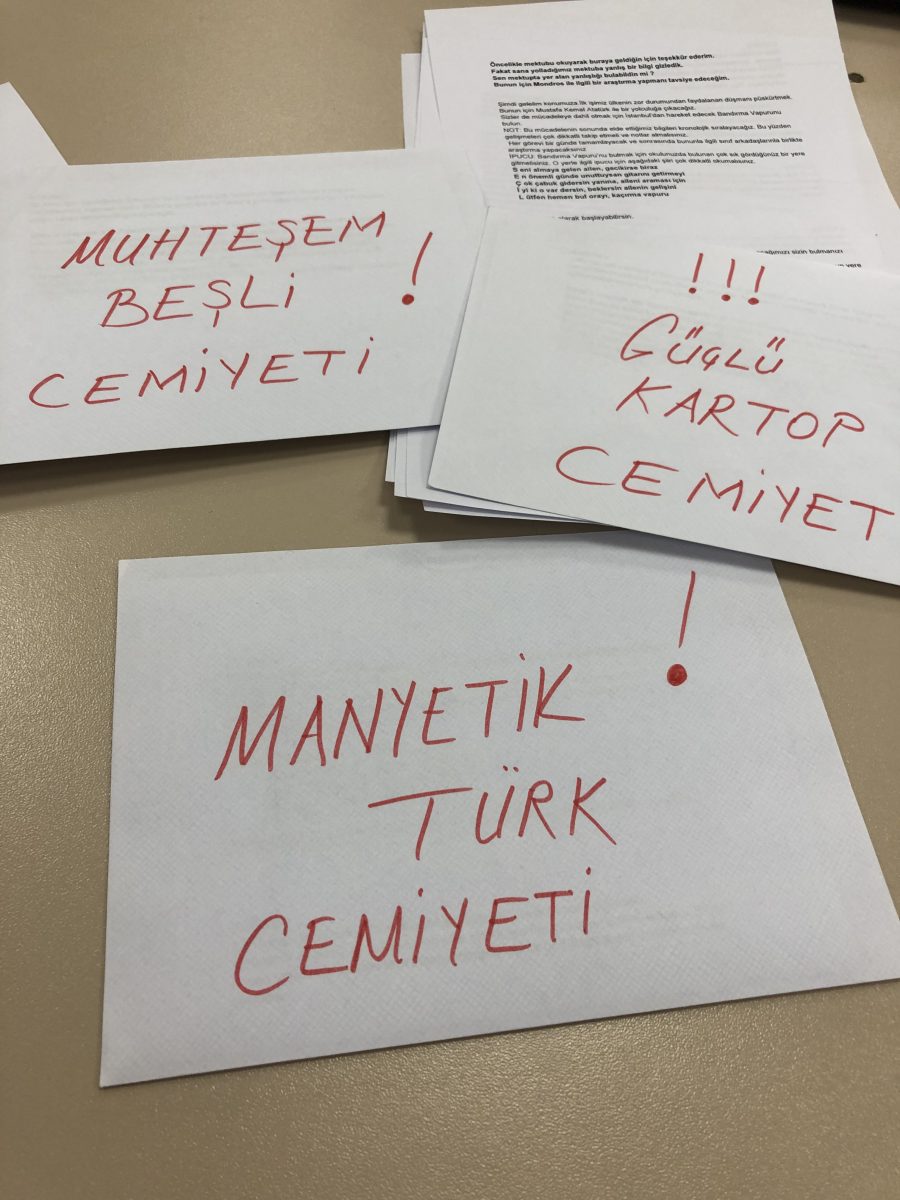 Öncelikle mektubu okuyarak buraya geldiğin için teşekkür ederim.
Fakat sana yolladığımız mektuba yanlış bir bilgi gizledik.
Sen mektupta yer alan yanlışlığı bulabildin mi ?
Bunun için Mondros ile ilgili bir araştırma yapmanı tavsiye edeceğim.
Şimdi gelelim konumuza.İlk işimiz ülkenin zor durumundan faydalanan düşmanı püskürtmek.
Bunun için Mustafa Kemal Atatürk ile bir yolculuğa çıkacağız.
Sizler de mücadeleye dahil olmak için İstanbul'dan hareket edecek Bandırma Vapurunu
bulun.
NOT: Bu mücadelenin sonunda elde ettiğimiz bilgileri kronolojik sıralayacağız. Bu yüzden
gelişmeleri çok dikkatli takip etmeli ve notlar almalısınız.
Her görevi bir günde tamamlayacak ve sonrasında bununla ilgili sınıf arkadaşlarınla birlikte
araştırma yapacaksınız
İPUCU: Bandırma Vapuru'nu bulmak için okulunuzda bulunan çok sık gördüğünüz bir yere
gitmelisiniz. O yerle ilgili ipucu için aşağıdaki şiiri çok dikkatli okumalısınız.
S eni almaya gelen ailen, gecikirse biraz
E n önemli günde unuttuysan gitarını getirmeyi
Ç ok çabuk gidersin yanına, aileni araması için
İ yi ki o var dersin, beklersin ailenin gelişini
L ütfen hemen bul orayı, kaçırma vapuru
olarak başlayabilirsin.
sizin bulmanızı
yere
MUHTEŞEM
BEŞLİ !
CEMİYETİ
!!!
GÜÇLÜ
KARTOP
CEMİYET
!
MANYETİK
TÜRK
CEMİYETİ